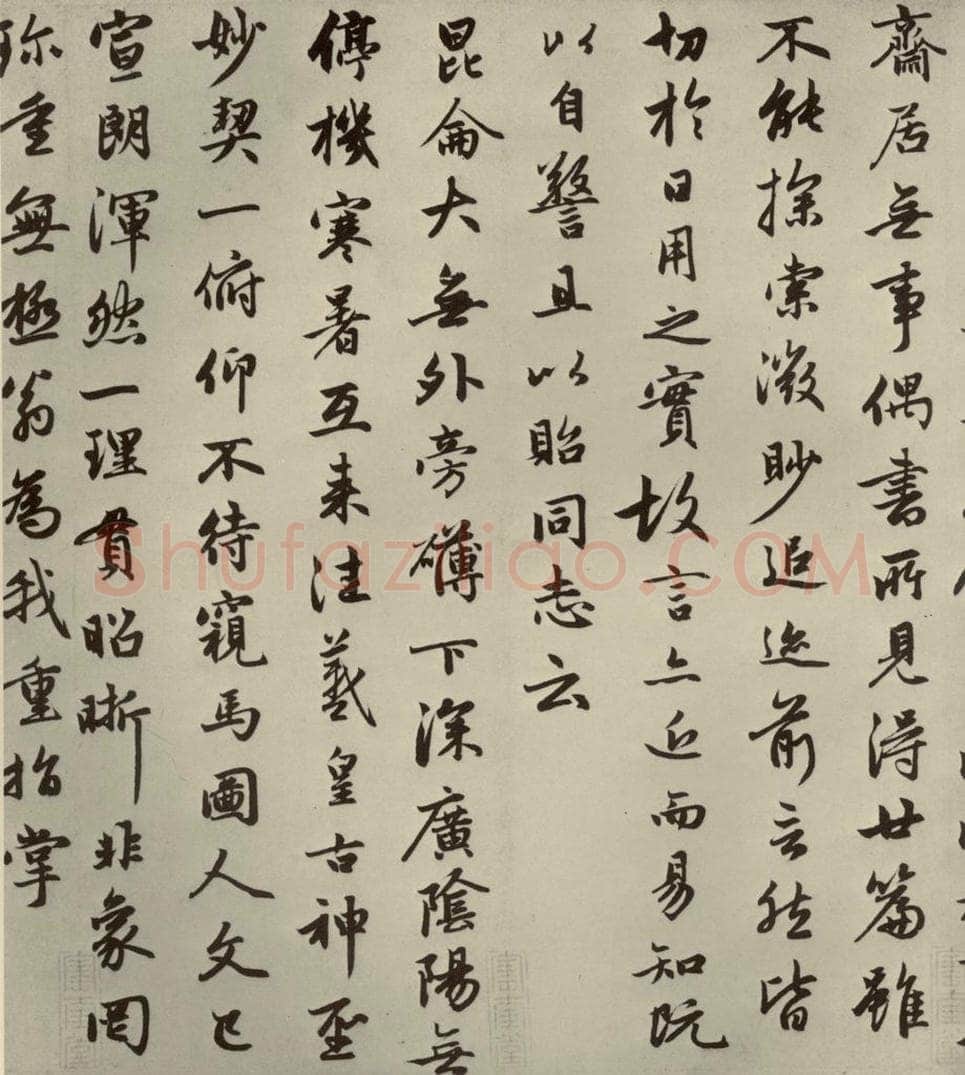 齋居無事偶書所見得廿篇雖
不能探索微眇追迹前言然皆
切於日用之實故言亦近而易知既
以自警且以貽同志云
昆侖大無外旁礴下深廣陰陽無
停機寒暑互来往羲皇古神聖
妙契一俯仰不待窺馬圖人文已
宣朗渾然一理貫昭晰非象罔
珎重無極翁為我重指掌
Shufaziliao.COM